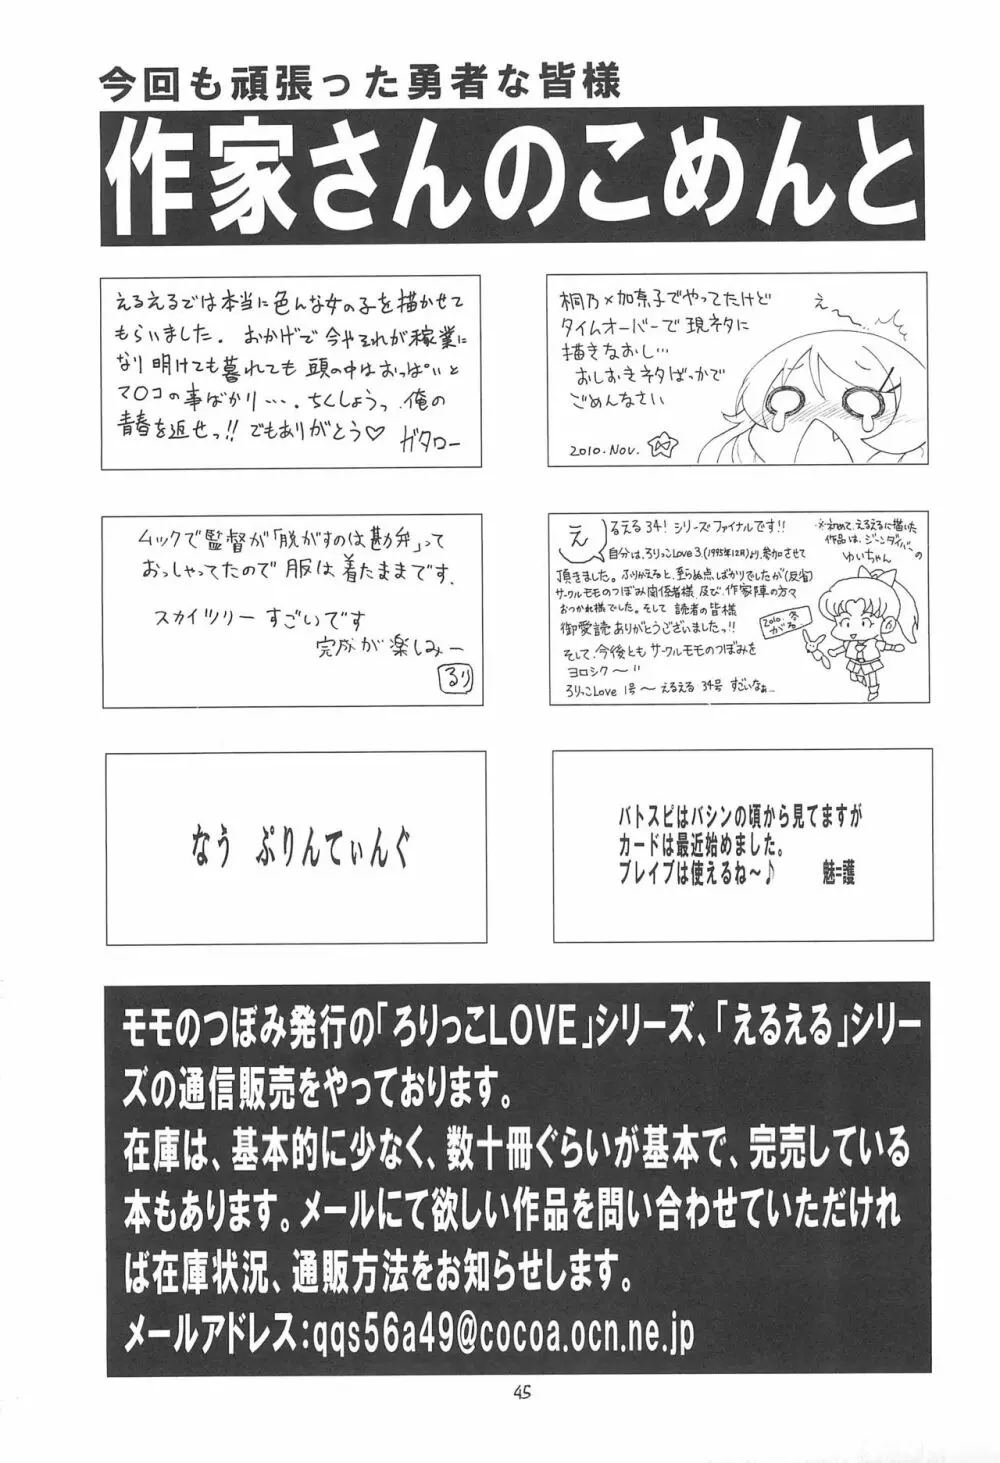 今回も頑張った勇者な皆様
作家さんのこめんと
えるえるでは本当に色んな女の子を描かせて
もらいました。おかげで今やそれが稼業に
なり明けても暮れても頭の中はおっぱいと
マ〇コの事ばかり…. ちくしょうっ俺の
青春を返せっ!! でもありがとう♡
ガタロー
桐乃×加奈子でやってたけど
タイムオーバーで現ネタに
描きなおし…
おしおきネタばっかで
ごめんなさい
2010.Nov.
え〜
ムックで監督が「脱がすのは勘弁」って
おっしゃってたので服は着たままです.
スカイツリーすごいです
完成が楽しみー
るり
える える 34! シリーズファイナルです!!
自分は、ろりっこLove 3.(1995年12月)より、参加させて
頂きました。ふりかえると、至らぬ点ばかりでしたが(反省)
サークルモモのつぼみ関係者様、及び、作家陣の方々
おつかれ様でした。そして 読者の皆様
御愛読ありがとうございましたっ!!
そして、今後とも サークルモモのつぼみを
ヨロシク〜''
ろりっこLove 1号 〜 えるえる 34号 すごいなぁ…
※初めて、えるえるに描いた
作品は、ジーンダイバーの
ゆいちゃん
2010. 冬
なう ぷりんてぃんぐ
バトスピはバシンの頃から見てますが
カードは最近始めました。
ブレイブは使えるね〜♪ 魅=護
モモのつぼみ発行の「ろりっこLOVE」シリーズ、「えるえる」シリー
ズの通信販売をやっております。
在庫は、基本的に少なく、数十冊ぐらいが基本で、完売している
本もあります。メールにて欲しい作品を問い合わせていただけれ
ば在庫状況、通販方法をお知らせします。
メールアドレス:qqs56a49@cocoa.ocn.ne.jp
45